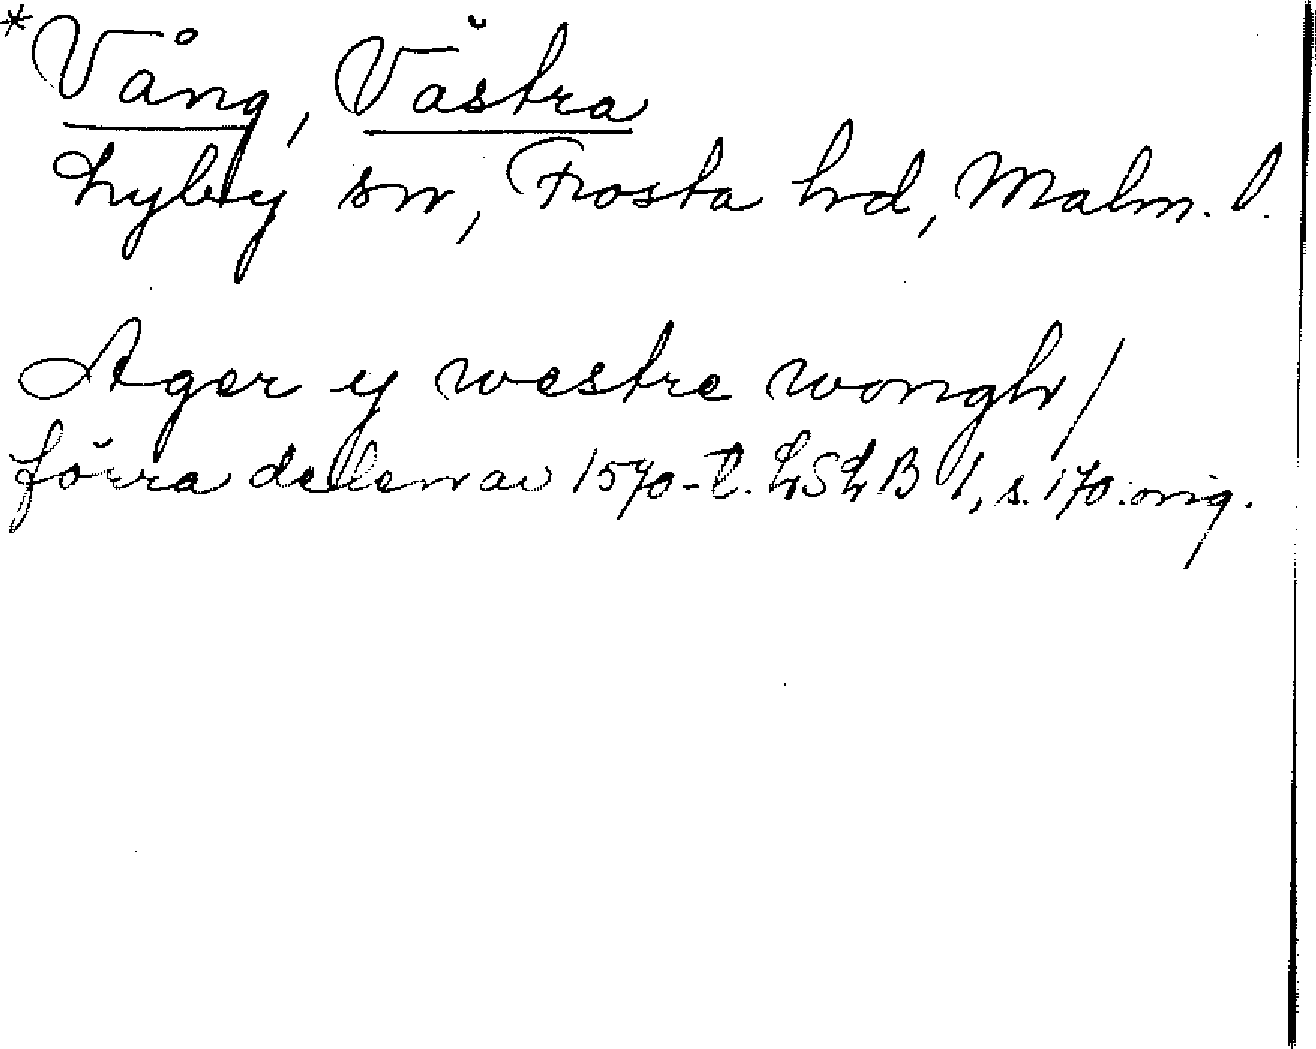 *Vång, Västra
Lyby sn, Frosta hd, Malm. l.
Ager y westre wongh/
förra delen av 1570-t. LSLB 1, s. 170. orig.